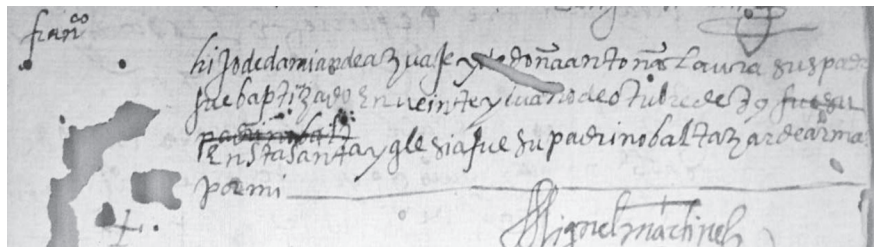 fran^co
hijo de damian de azuaje y de doña antonia lauria sus padres
fue baptizado en veinte y uno de otubre de 79 fue su
padrino balt
en sta santa yglesia fue su padrino baltazar de arma
por mi
Miguel martinez